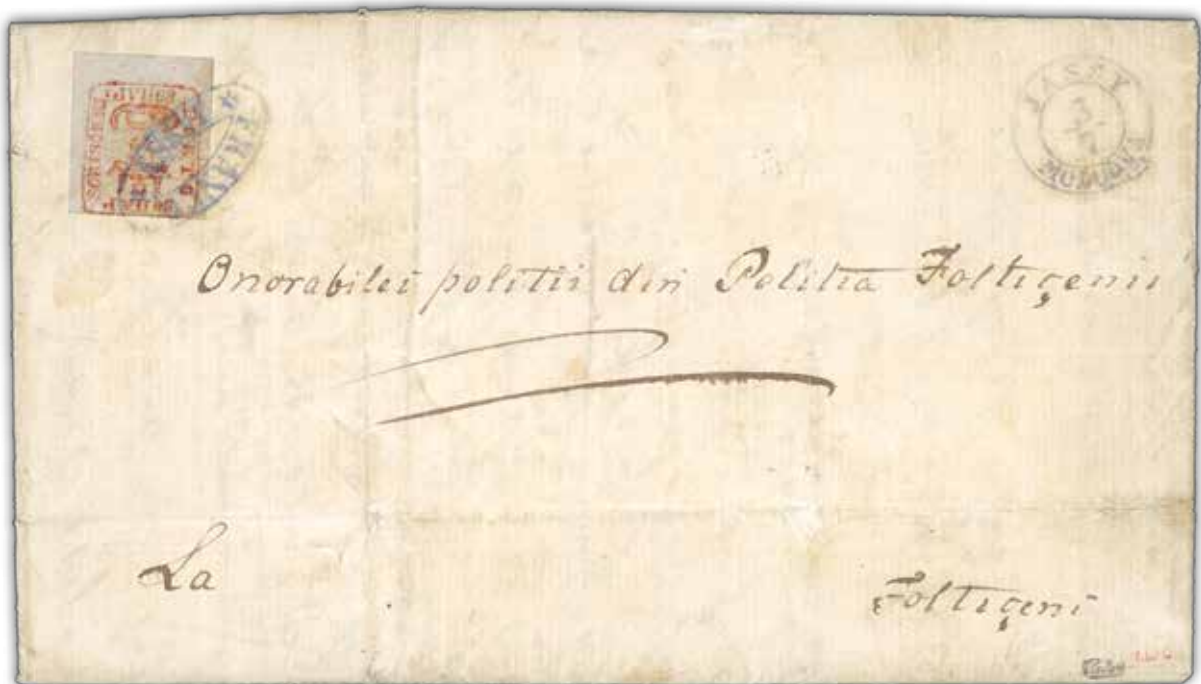 PORTO SCRISOREI
JASSY
MOLDOVA
Onorabilei politii din Politia Foltiçenii
La
Foltiçeni